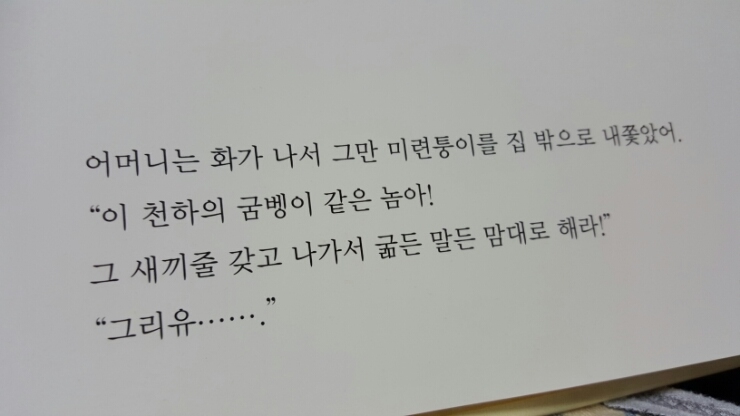 어머니는 화가 나서 그만 미련퉁이를 집 밖으로 내쫓았어.
“이 천하의 굼벵이 같은 놈아!
그 새끼줄 갖고 나가서 굶든 말든 맘대로 해라!”
“그리유…….”